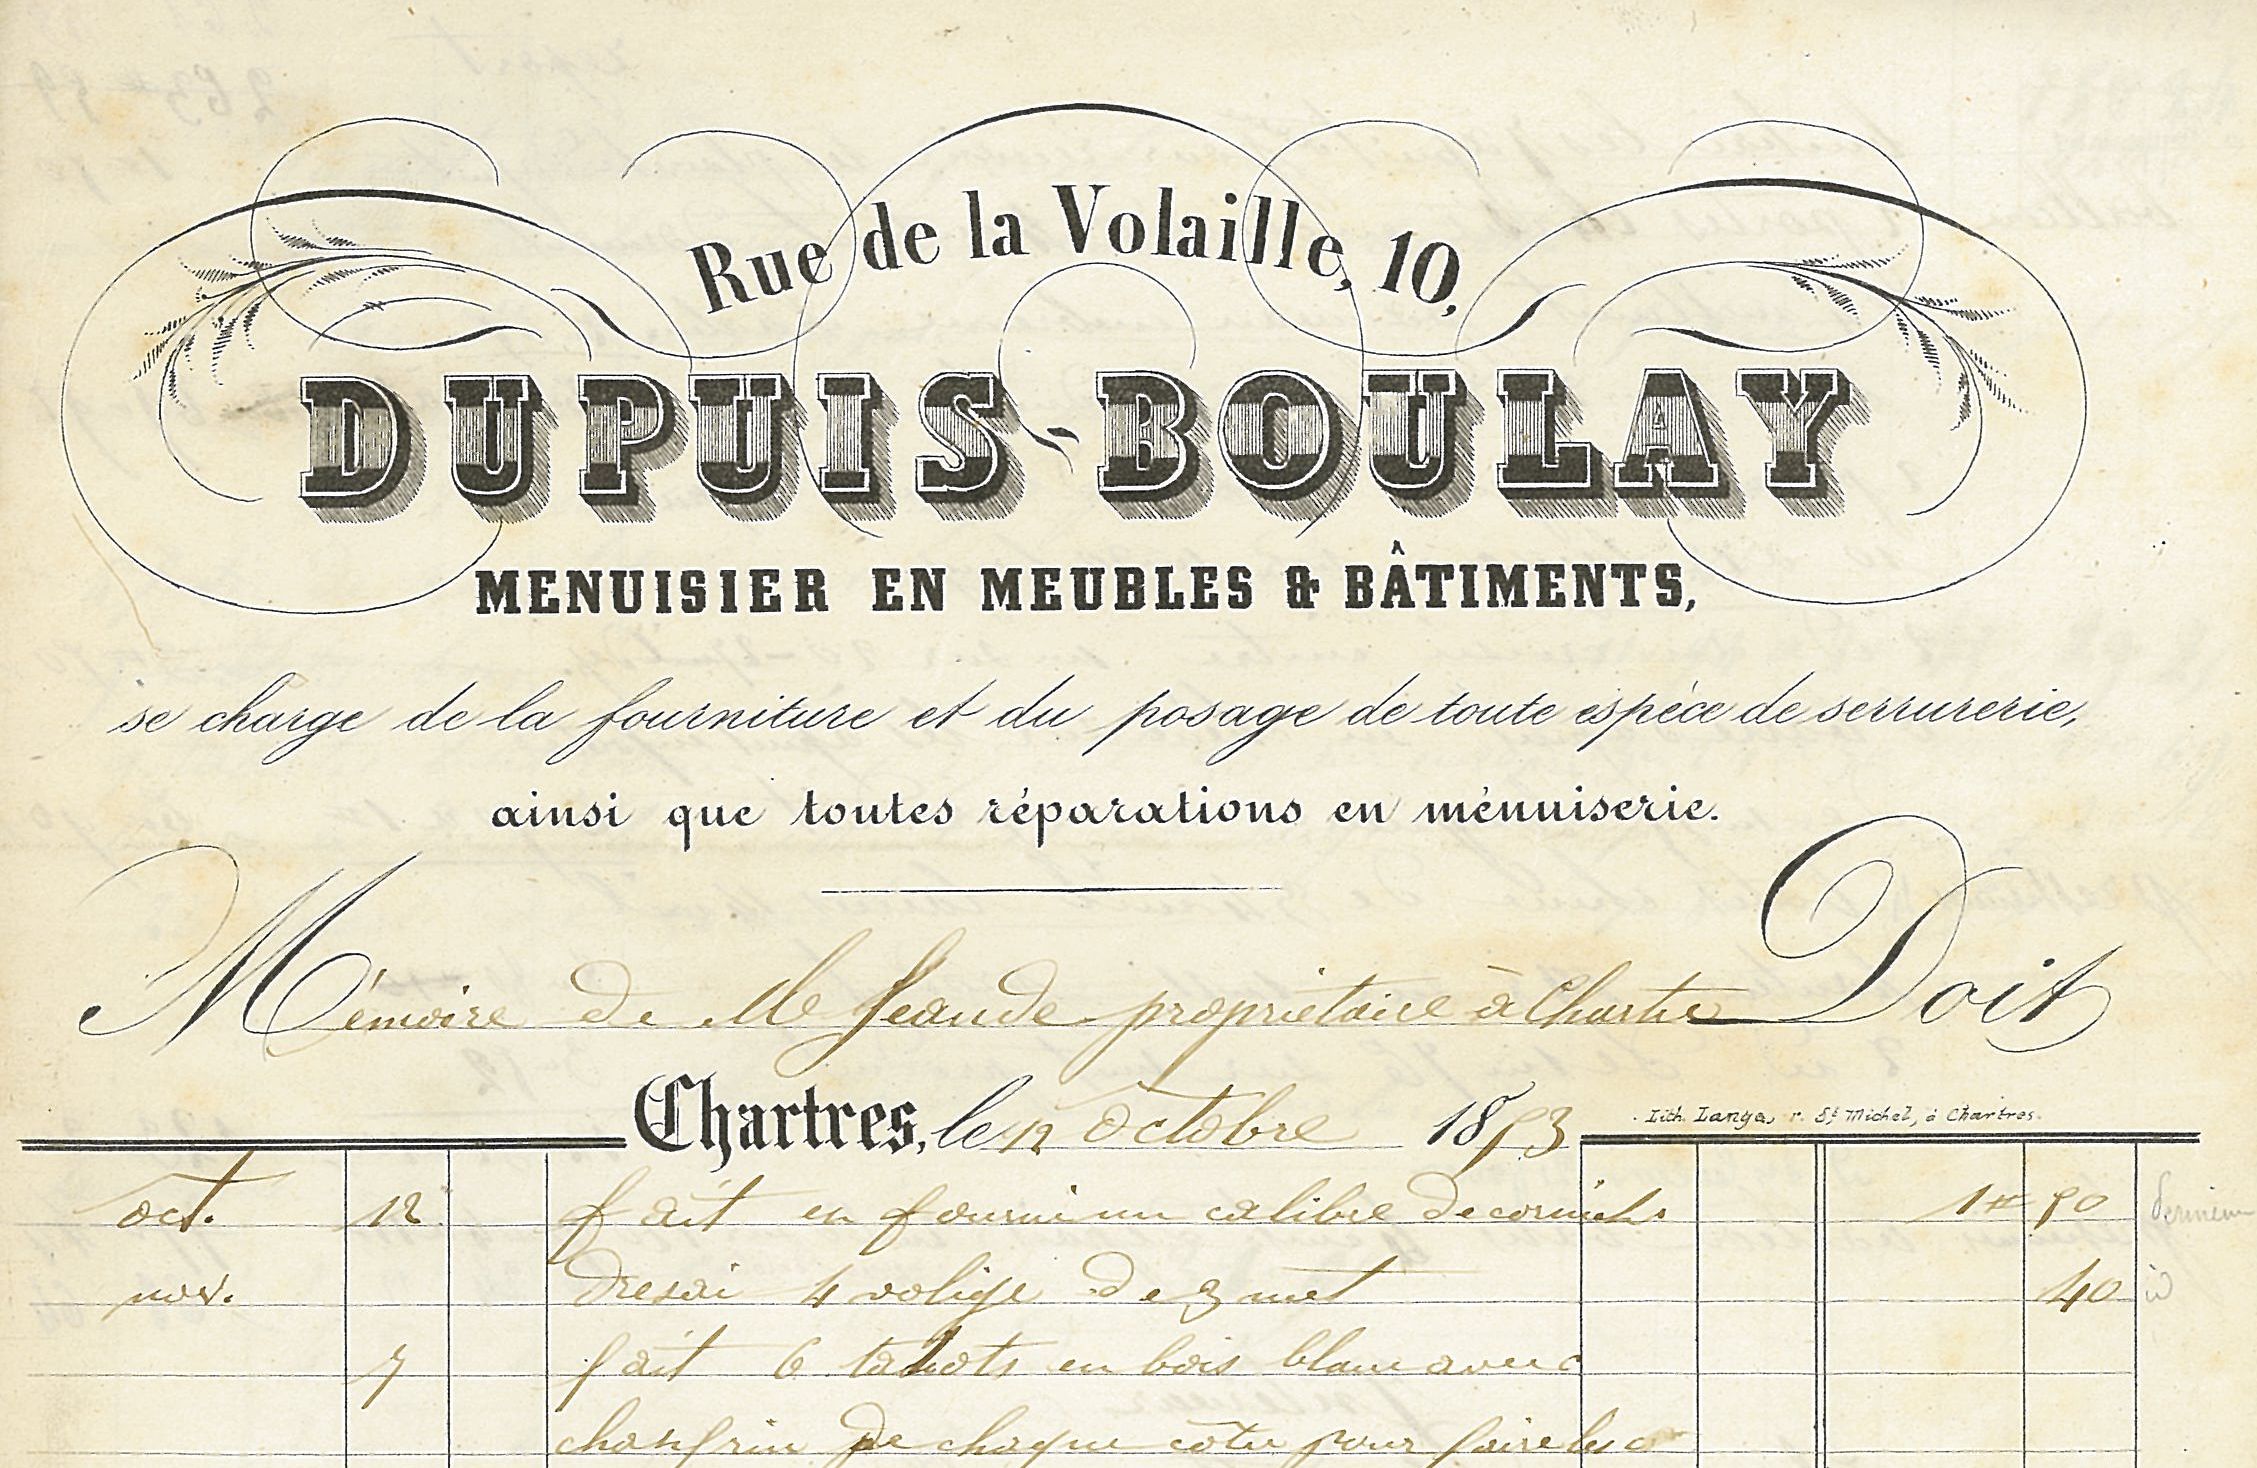 Rue de la Volaille, 10,
DUPUIS-BOULAY
MENUISIER EN MEUBLES & BÂTIMENTS,
se charge de la fourniture et du posage de toute espèce de serrurerie,
ainsi que toutes réparations en ménuiserie.
Mémoire de Mr Jeande propriétaire à Chartre Doit
Chartres, le 12 octobre 1853
Lith. Langa, r. St Michel, à Chartres.
oct. 12 fait en fourni un calibre de corniche 1 50
nov. dresai 4 volige de 3 met 40
7 fait 6 tabots en bois blanc avec
chanfrin de chaque côté pour faire les